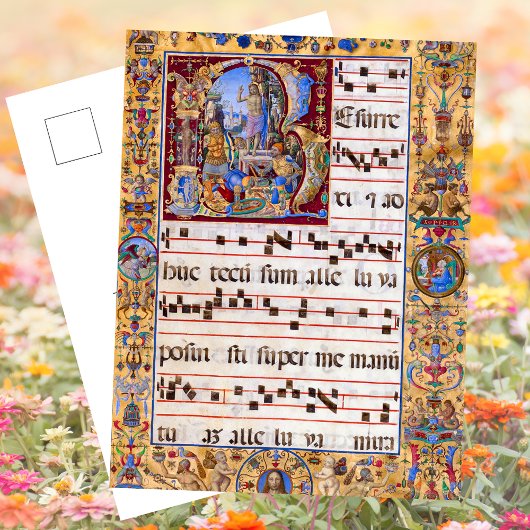 Resurre
xi ⁊ ad
huc tecū sum alle lu ya
posui sti super me manū
tu as alle lu ya mira